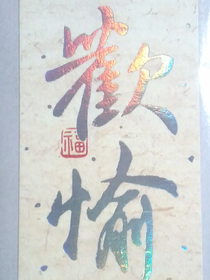 歡
福
愉